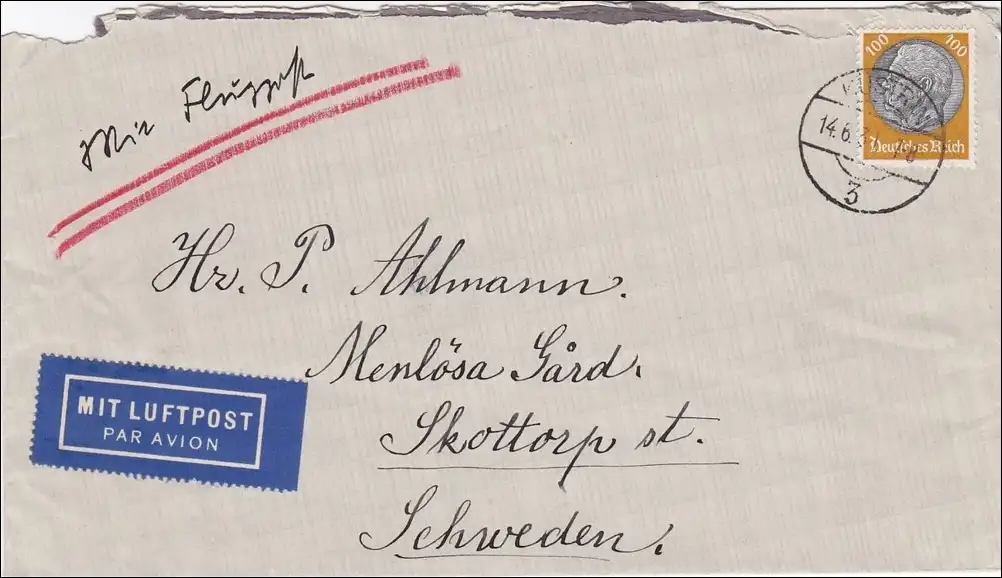 Mit Flugpost
100 100
Deutsches Reich
KÜSTRIN
14.6.3
3
Hr. P. Ahlmann.
Menlösa Gård.
Skottorp st.
Schweden.
MIT LUFTPOST
PAR AVION